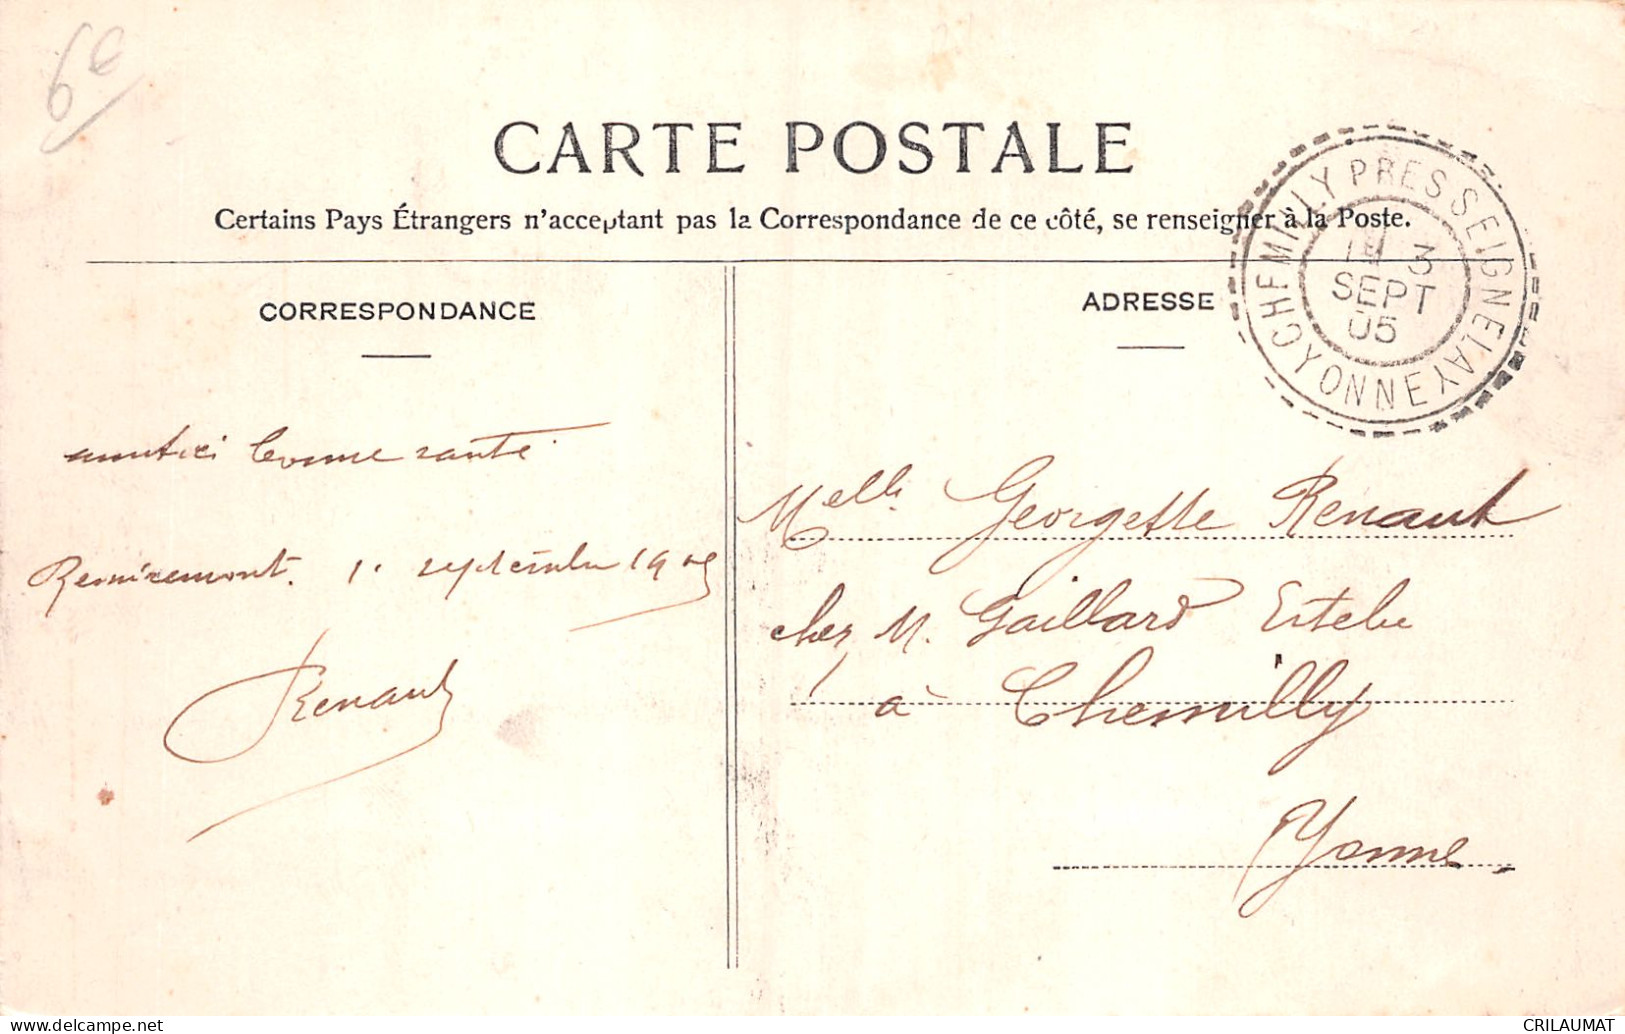 6€
CARTE POSTALE
Certains Pays Étrangers n'acceptant pas la Correspondance de ce côté, se renseigner à la Poste.
CHEMILLY PRES SEIGNELAY YONNE
3
SEPT
05
CORRESPONDANCE
ADRESSE
bonne santé
Remiremont. 1. septembre 1905
Renault
Melle Georgette Renault
chez M. Gaillard
à Chemilly
Yonne
CRILAUMAT